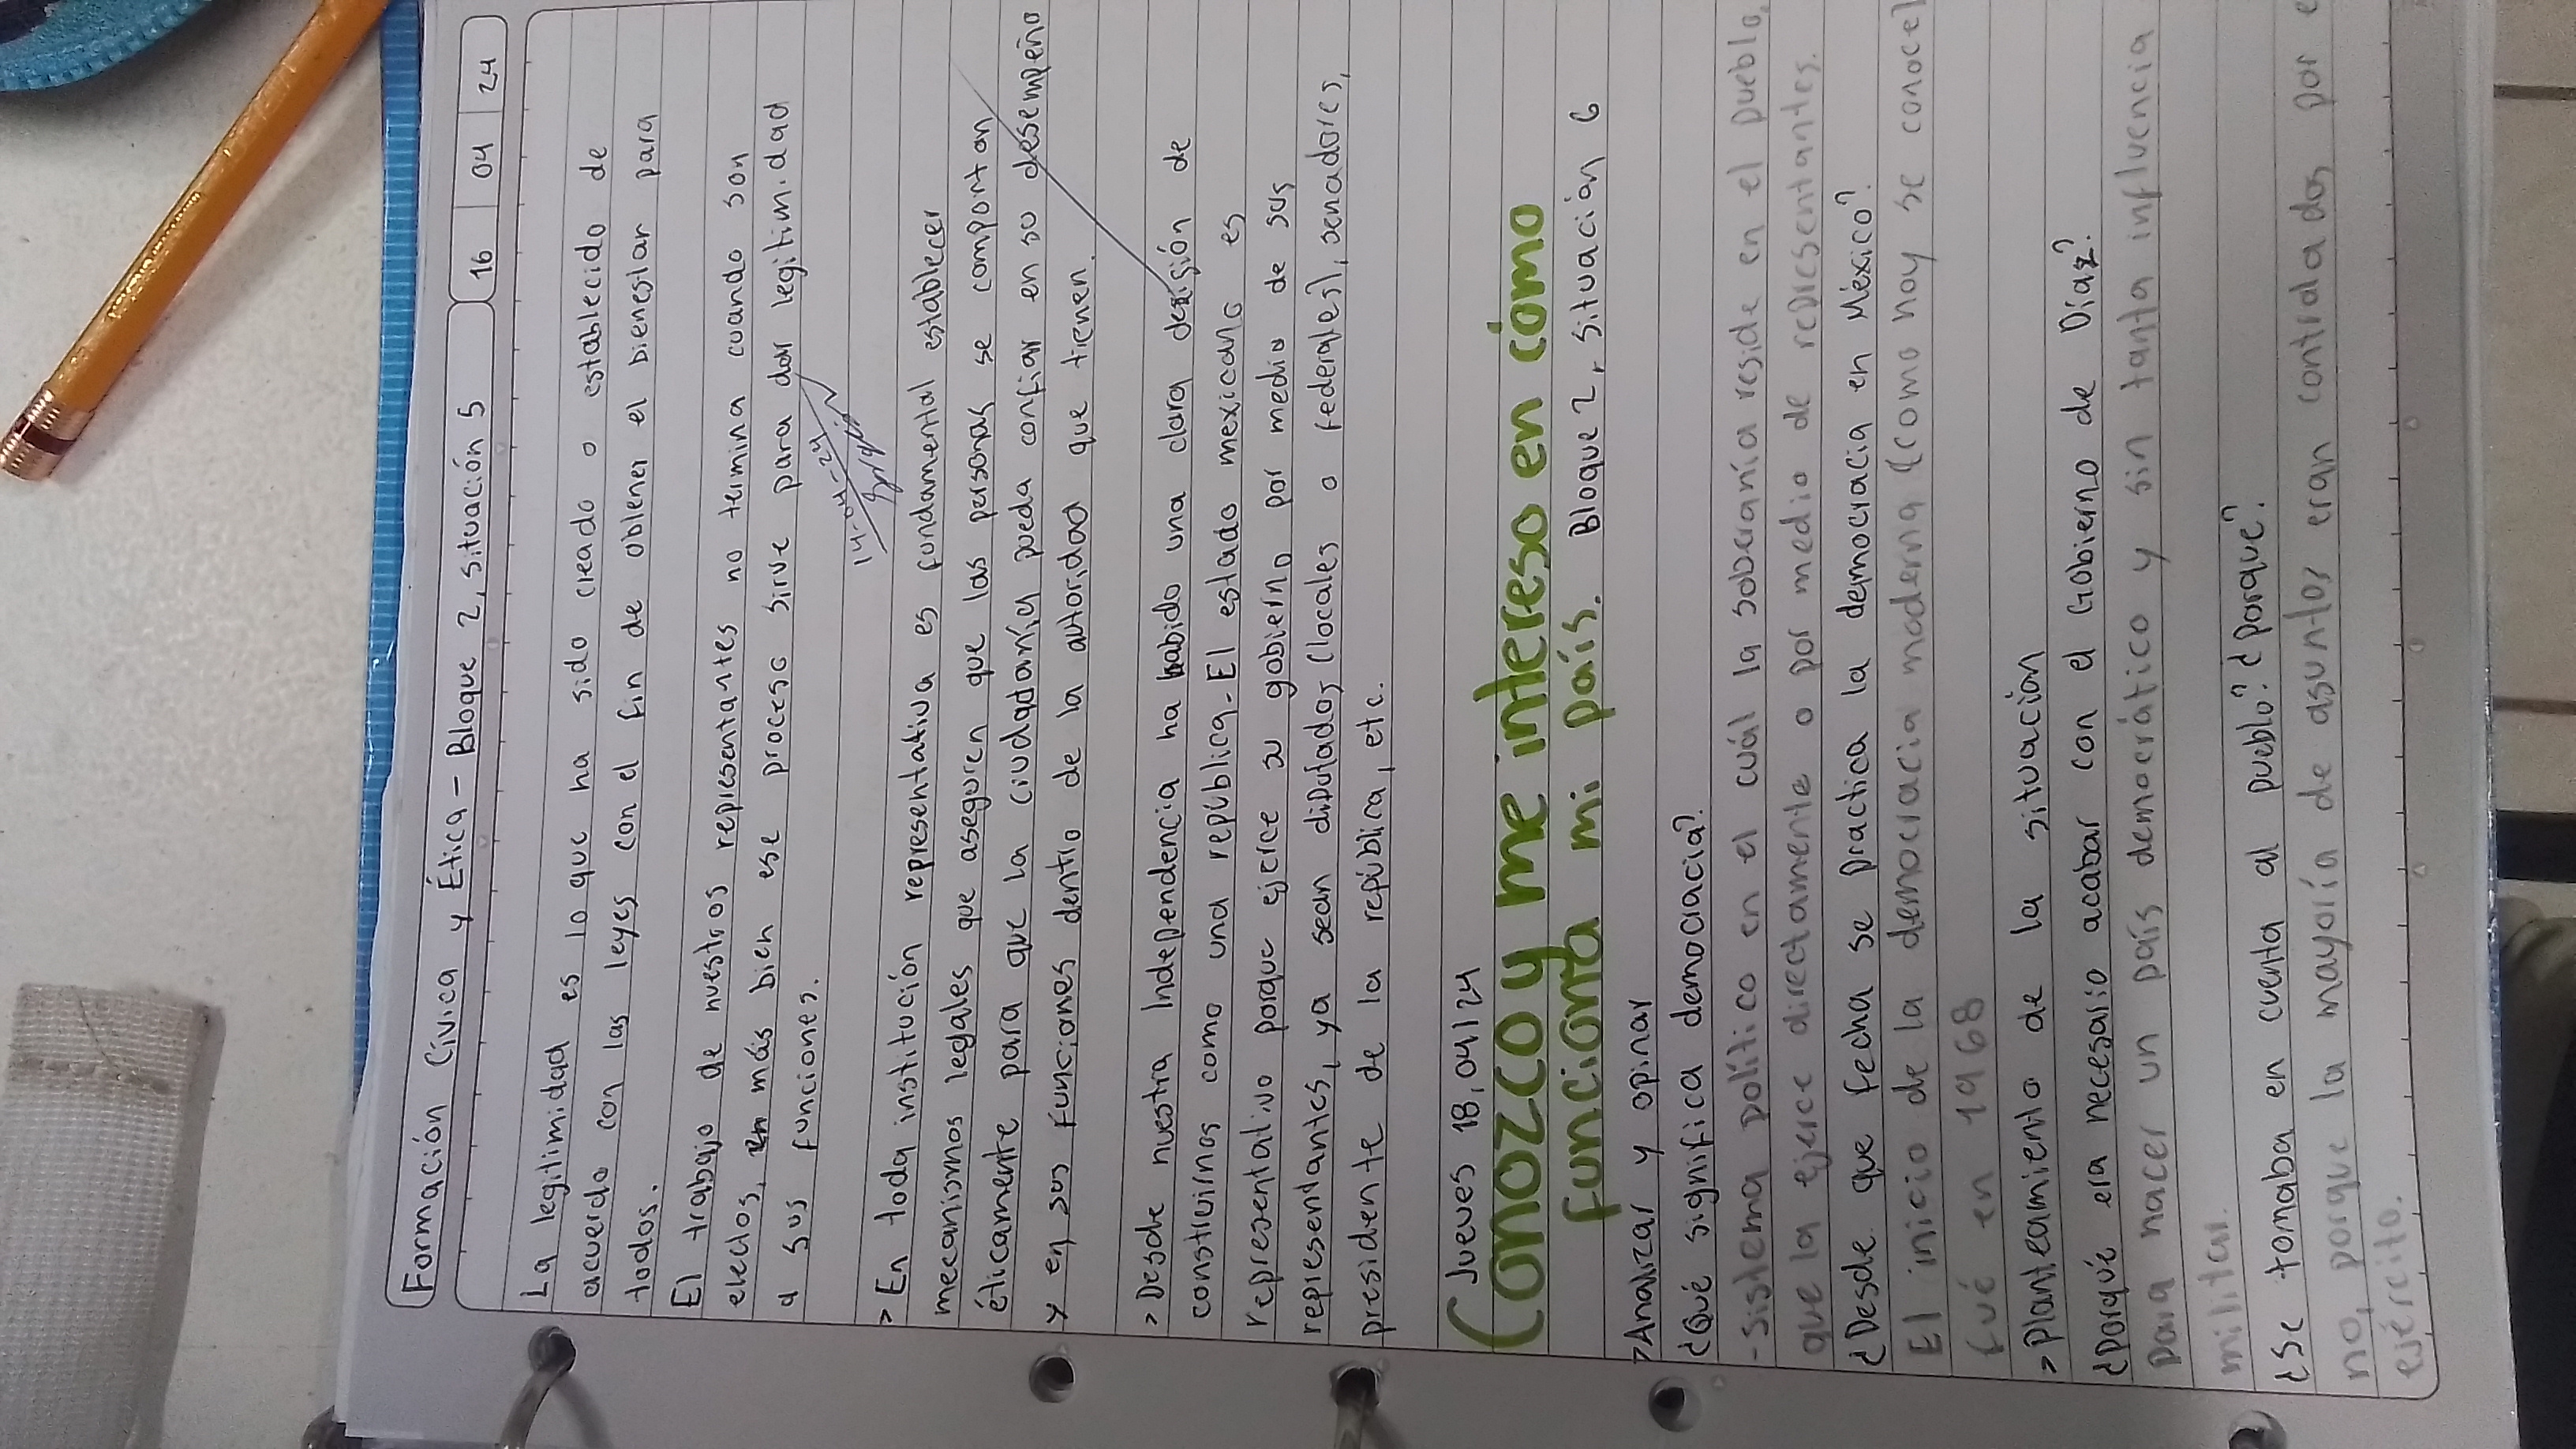 Formación Cívica y Ética - Bloque 2, situación 5
16 04 24
La legitimidad es lo que ha sido creado o establecido de
acuerdo con las leyes con el fin de obtener el bienestar para
todos.
El trabajo de nuestros representantes no termina cuando son
electos, más bien ese proceso sirve para dar legitimidad
a sus funciones.
14-04-24
> En toda institución representativa es fundamental establecer
mecanismos legales que aseguren que las personas se comportan
éticamente para que la ciudadanía pueda confiar en su desempeño
y en sus funciones dentro de la autoridad que tienen.
> Desde nuestra Independencia ha habido una clara desición de
construirnos como una república. El estado mexicano es
representativo porque ejerce su gobierno por medio de sus
representantes, ya sean diputados (locales o federales), senadores,
presidente de la república, etc.
Jueves 18, 04 | 24
Conozco y me intereso en cómo
funciona mi país. Bloque 2, situación 6
> Analizar y opinar
¿Qué significa democracia?
- Sistema político en el cuál la soberanía reside en el pueblo,
que la ejerce directamente o por medio de representantes.
¿Desde que fecha se practica la democracia en México?
El inicio de la democracia moderna (como hoy se conoce)
fué en 1968
> Planteamiento de la situación
¿Porqué era necesario acabar con el Gobierno de Díaz?
Para hacer un país democrático y sin tanta influencia
militar.
¿Se tomaba en cuenta al pueblo? ¿Porque?
no, porque la mayoría de asuntos eran controlados por e
ejército.